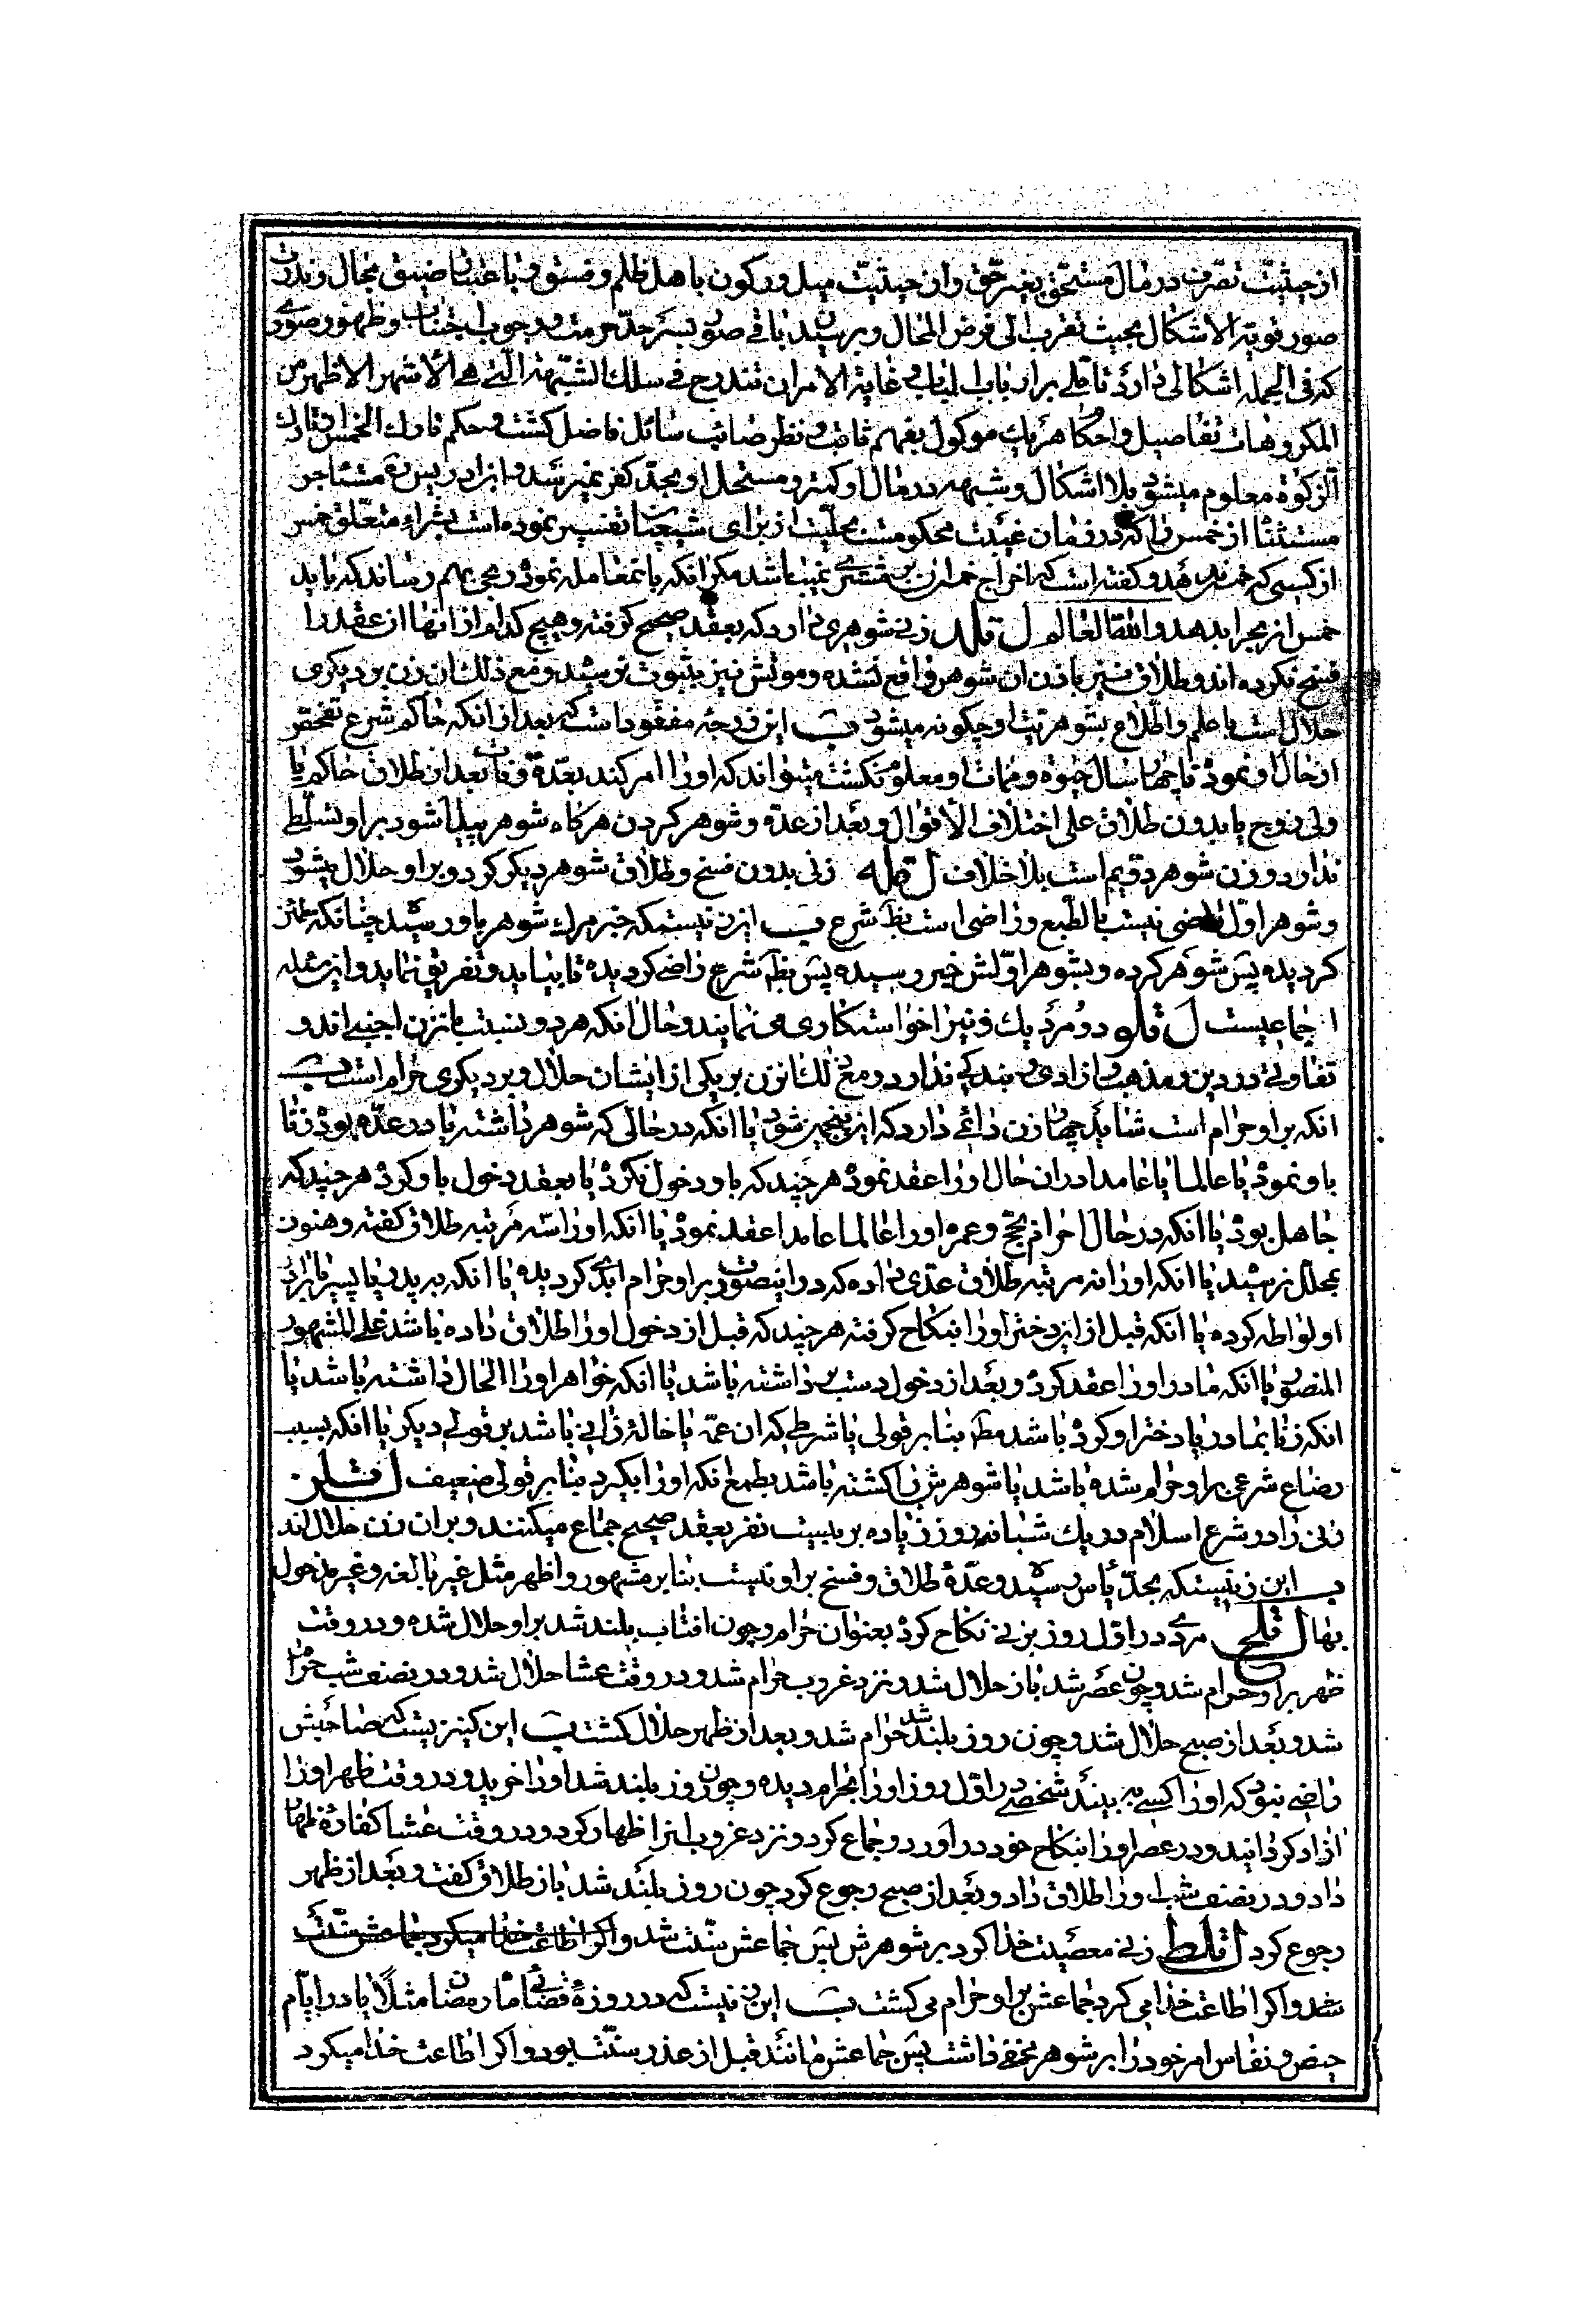 از حیثیّت تصرّف در مال مستحقّ بغیر حقّ و از حیثیّت میل و رکون با هل ظلم و فسق و باعتبار ضیق مجال و ندرت
صور قویة الاشکال بحیث تقرب الی فرض المحال و برسیدن باقی صور بسرحدّ حرمت و وجوب اجتناب و ظهور صوری
که فی الجمله اشکالی دارد تاملی بر ارباب الباب و غایة الامر ان تندرج فی سلک الشبهة الّتی هی الاشهر الاظهر من
المکروهات تفاصیل و احکام هر یک موکول بفهم ثاقب و نظر صائب سائل فاضل کشت و حکم تارک الخمس و تارک
الزکوة معلوم میشود بلا اشکال و شبهه در مال او کمتر و مستحل او بحدّ کفر نمیرسد و ابن ادریس ره متاجر
مستثنا از خمس را که در زمان غیبت محکومست بحلیّت از برای شیعیان تفسیر نموده است بشراء متعلّق خمس
از کسی که خمس ندهد و کفته است که اخراج خمس ازین بر مشتری نمیباشد مکر انکه با نمعامله نمود ربحی بهم رساند که باید
خمس از ربح را بدهد و الله العالم ل قلد زنی شوهری دارد که بعقد صحیح کرفته و هیچ کدام از انها از عقد را
فسخ نکرده اند و طلاق نیز باذن ان شوهر واقع نشده و موتش نیز بثبوت نرسید و مع ذلک ان زن بر دیکری
حلال است با علم و اطّلاع بشوهر تیت او چکونه میشود ب این زوجه مفقود است که بعد از انکه حاکم شرع تفحّص
از حال او نمود تا چهار سال حیوة و ممات او معلوم نکشت میتواند که او را امر کند بعدّة وفات بعد از طلاق حاکم یا
ولی زوج یا بدون طلاق علی اختلاف الاقوال و بعد از عدّه و شوهر کردن هرکاه شوهر پیدا شود بر او تسلّطی
ندارد و زن شوهر دویم است بلا خلاف ل قله زنی بدون فسخ و طلاق شوهر دیکر کرد و بر او حلال میشود
و شوهر اوّل راضی نیست بالطّبع و راضی است بظ شرع ب این زنیستکه خبر مرک شوهر باو رسید چنانکه
کردیده پس شوهر کرده و بشوهر اوّلش خبر رسیده پس بظ شرع راضی کردیده تا بیاید و تفریق نماید و این مسئله
اجماعیست ل قلو دو مرد یک زنیرا خواستکاری می نمایند و حال انکه هر دو بنسبت بان زن اجنبی اند و
تفاوتی در دین و مذهب و ازادی و بندکی ندارد و مع ذلک ان زن بر یکی از ایشان حلال و بر دیکری حرام است ب
انکه بر او حرام است شاید چهار زن دائمی دارد که این پنجمین شود یا انکه در حالی که شوهر داشته یا در عدّه بود زنا
باو نمود یا عالما یا عامدا در ان حال او را عقد نمود هر چند که باو دخول نکرد یا بعقد دخول باو کرد هر چند که
جاهل بود یا انکه در حال احرام بحج و عمره او را عالما عامدا عقد نمود یا انکه او را سه مرتبه طلاق کفته و هنوز
بمحلل نرسید یا انکه او را نه مرتبه طلاق عدّی داده که در اینصورت بر او حرام ابدی کردیده یا انکه به پدر یا پسر یا برادر
او لواطه کرده یا انکه قبل از این دختر او را بنکاح کرفته هر چند که قبل از دخول او را طلاق داده باشد علی المشهور
المنصور یا انکه مادر او را عقد کرد و بعد از دخول دست برداشته باشد یا انکه خواهر او را الحال داشته باشد یا
انکه زنا بمادر یا دختر او کرد باشد مط بنا بر قولی یا شرطی که ان عمّه یا خاله زانی باشد بر قولی دیکر یا انکه بسبب
رضاع شرعی بر او حرام شده باشد یا شوهرش را کشته باشد بطمع انکه او را بکیرد بنا بر قولی ضعیف ل قلز
زنی را در شرع اسلام در یک شبانه روز زیاده بر بیست نفر بعقد صحیح جماع میکنند و بر ان زن حلال اند
ب این زنیستکه بحدّ یأس رسید و عدّه طلاق و فسخ بر او نیست بنا بر مشهور و اظهر مثل غیر بالغه و غیر مدخول
بها ل قلح مردی در اوّل روز بزنی نکاح کرد بعنوان حرام و چون افتاب بلند شد بر او حلال شده و در وقت
ظهر بر او حرام شد و چون عصر شد باز حلال شد و نزد غروب حرام شد و در وقت عشا حلال شد و در نصف شب حرام
شد و بعد از صبح حلال شد و چون روز بلند شد حرام شد و بعد از ظهر حلال کشت ب این کنیزیست که صاحبش
راضی نبود که او را کسی به بیند شخصی در اوّل روز او را بحرام دیده و چون روز بلند شد او را خرید و در وقت ظهر او را
ازاد کردانید و در عصر او را بنکاح خود در اورد و جماع کرد و نزد غروب انرا ظهار کرد و در وقت عشا کفاره ظهار
داد و در نصف شب او را طلاق داد و بعد از صبح رجوع کرد چون روز بلند شد باز طلاق کفت و بعد از ظهر
رجوع کرد ل قلط زنی معصیت خدا کرد بر شوهرش پس جماعش سنّت شد و اکر اطاعت خدا میکرد جماعش سنّت
شد و اکر اطاعت خدا می کرد جماعش بر او حرام می کشت ب این زنیست که در روزهٔ قضای ماه رمضان مثلاً یا در ایّام
حیض و نفاس امر خود را بر شوهر مخفی داشت پس جماعش مانند قبل از عذر سنّت بود و اکر اطاعت خدا میکرد